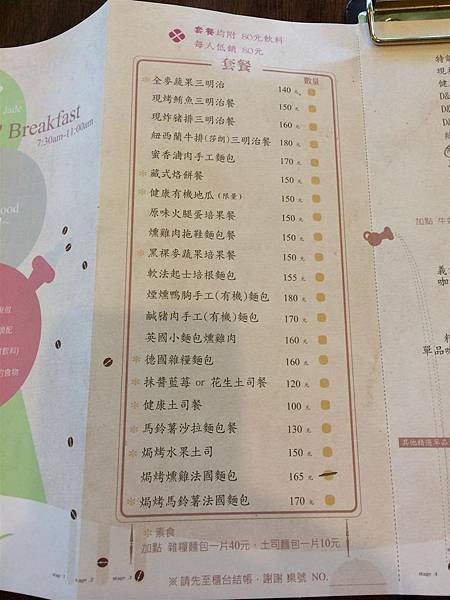 Jade
Breakfast
7:30am-11:00am
套餐均附 80元飲料
每人低銷 80元
套餐
數量
*全麥蔬果三明治 140元
現烤鮪魚三明治餐 150元
現炸豬排三明治餐 160元
紐西蘭牛排(莎朗)三明治餐 180元
蜜香滷肉手工麵包 170元
*藏式烙餅餐 150元
*健康有機地瓜(限量) 150元
原味火腿蛋培果餐 150元
燻雞肉拖鞋麵包餐 150元
*黑裸麥蔬果培果餐 150元
軟法起士培根麵包 155元
煙燻鴨胸手工(有機)麵包 180元
鹹豬肉手工(有機)麵包 170元
英國小麵包燻雞肉 160元
*德國雜糧麵包 160元
*抹醬藍莓 or 花生土司餐 120元
*健康土司餐 100元
*馬鈴薯沙拉麵包餐 130元
*焗烤水果土司 150元
焗烤燻雞法國麵包 165元
*焗烤馬鈴薯法國麵包 170元
*素食
加點 雜糧麵包一片40元，土司麵包一片10元
※請先至櫃台結帳，謝謝 桌號 NO.
加點 牛
其他精選單品